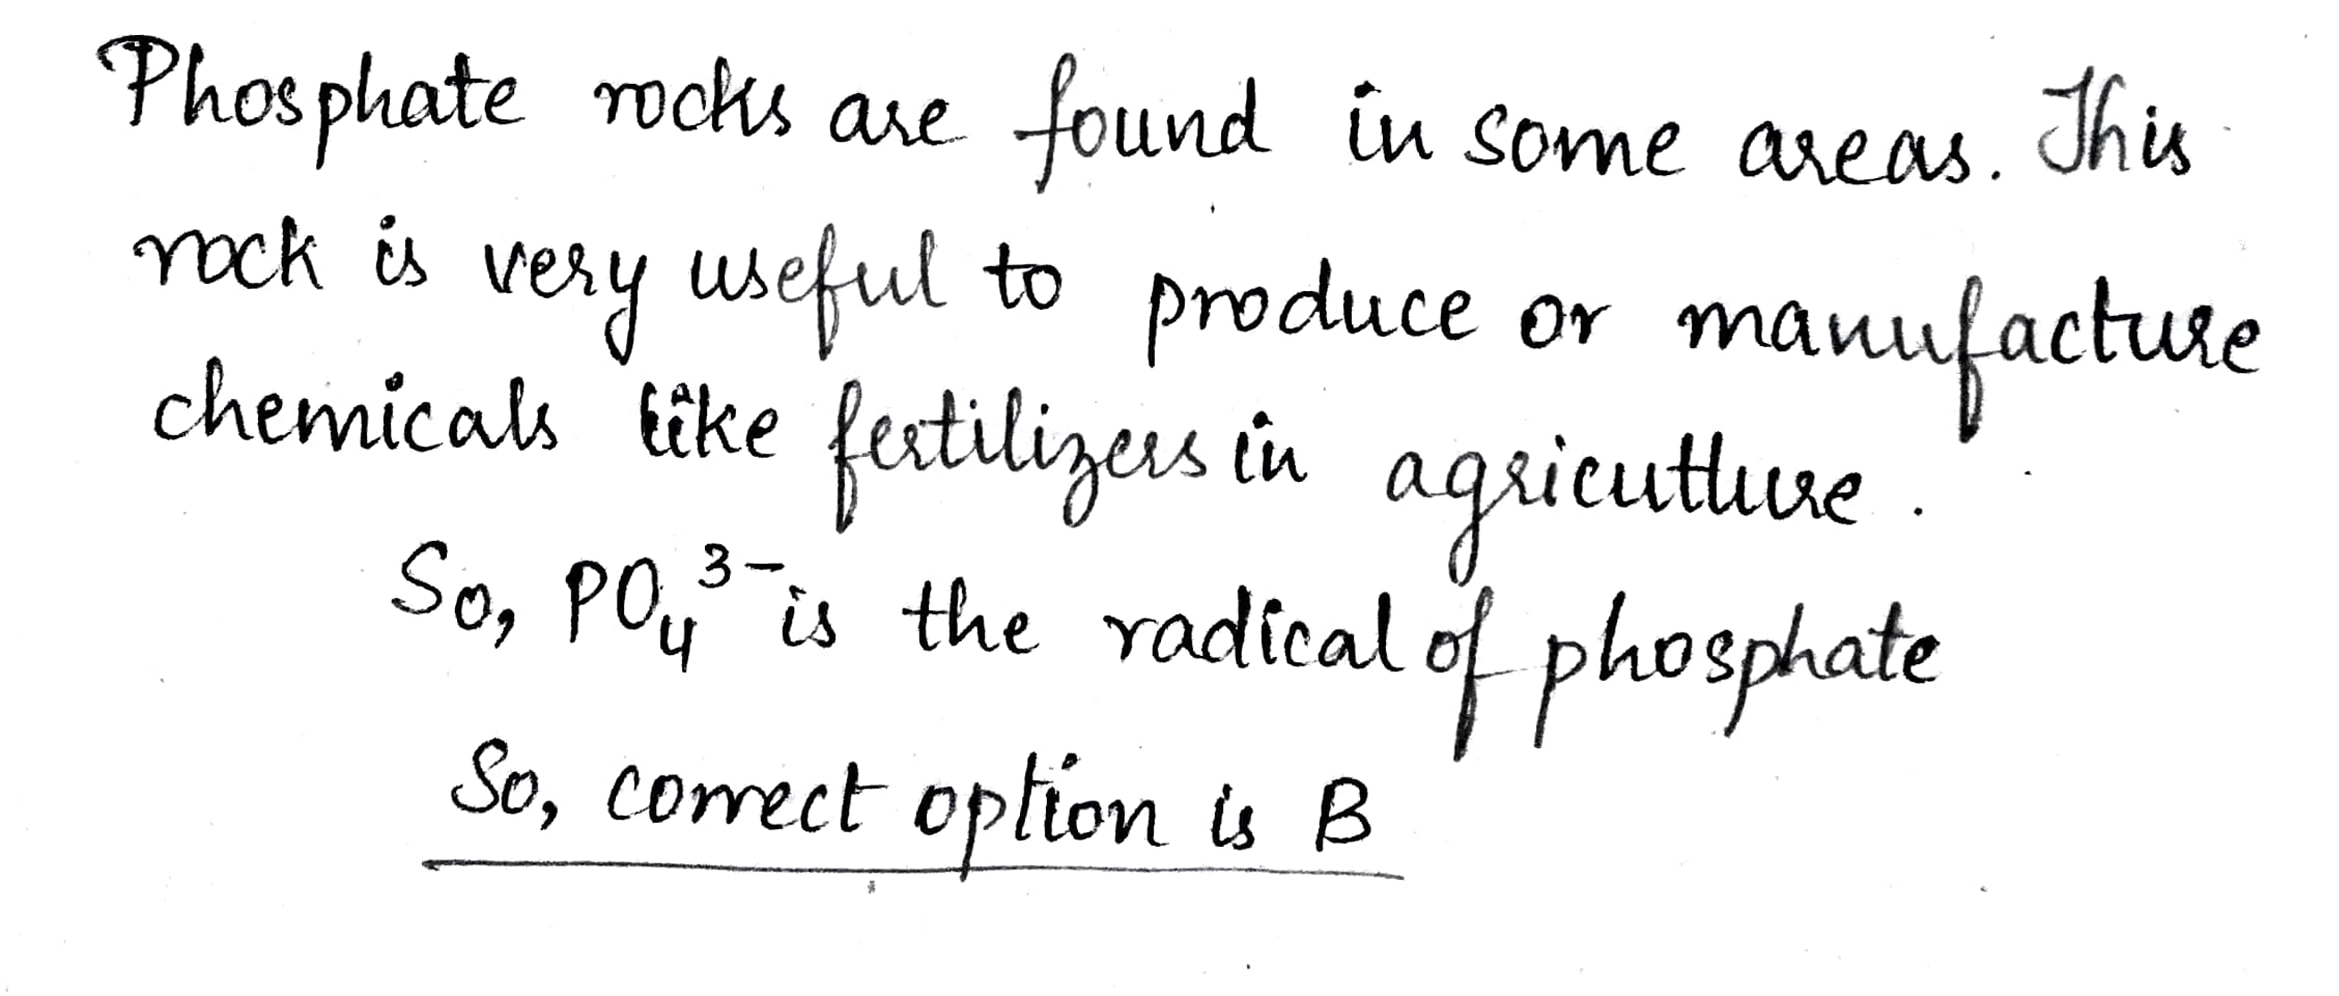 Phosphate rocks are found in some areas. This
rock is very useful to produce or manufacture
chemicals like fertilizers in agricutture.
So, PO₄³⁻ is the radical of phosphate
So, correct option is B